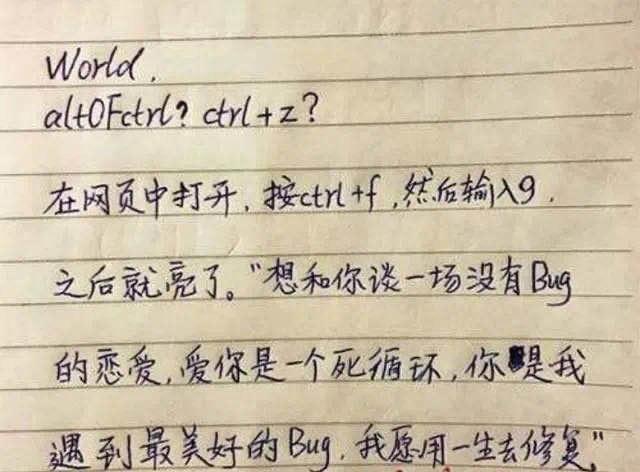 World.
alt0Fctrl? ctrl+z?
在网页中打开,按ctrl+f,然后输入9.
之后就亮了。"想和你谈一场没有Bug
的恋爱,爱你是一个死循环,你是我
遇到最美好的Bug.我愿用一生去修复"